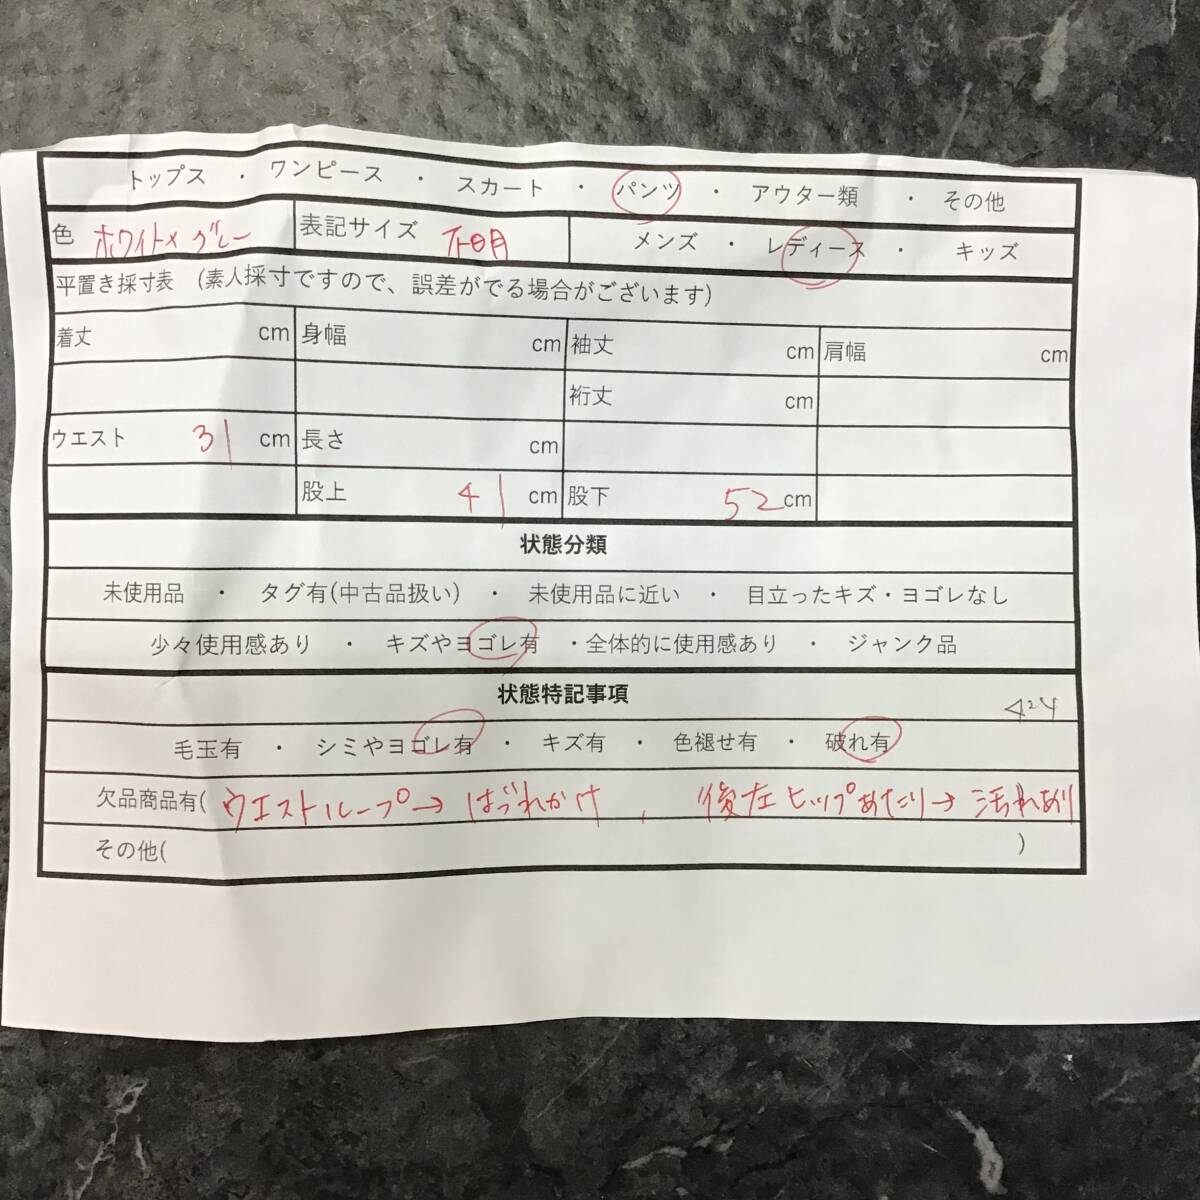 トップス ・ ワンピース ・ スカート ・ パンツ ・ アウター類 ・ その他
色 ホワイト×グレー 表記サイズ 不明 メンズ ・ レディース ・ キッズ
平置き採寸表 (素人採寸ですので、誤差がでる場合がございます)
着丈 cm 身幅 cm 袖丈 cm 肩幅 cm
裄丈 cm
ウエスト 31 cm 長さ cm
股上 41 cm 股下 52 cm
状態分類
未使用品 ・ タグ有(中古品扱い) ・ 未使用品に近い ・ 目立ったキズ・ヨゴレなし
少々使用感あり ・ キズやヨゴレ有 ・全体的に使用感あり ・ ジャンク品
状態特記事項 424
毛玉有 ・ シミやヨゴレ有 ・ キズ有 ・ 色褪せ有 ・ 破れ有
欠品商品有( ウエストループ→はづれかけ、後左ヒップあたり→汚れあり
その他( )